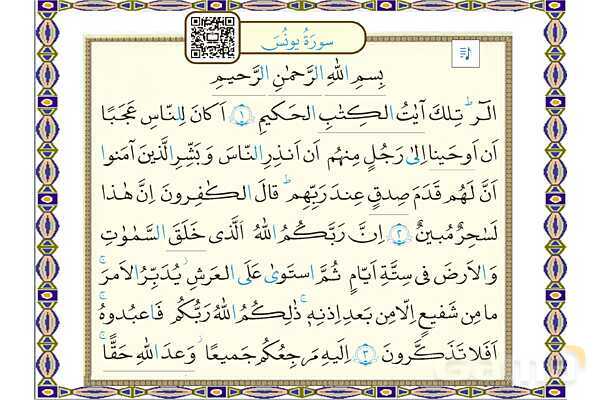 سورَةُ يونُسَ
بِسمِ اللّٰهِ الرَّحمٰنِ الرَّحيمِ
الٓرٰ تِلكَ آیٰتُ الكِتٰبِ الحَكیمِ ﴿١﴾ اَكانَ لِلنّاسِ عَجَبًا
اَن اَوحَینا اِلىٰ رَجُلٍ مِنهُم اَن اَنذِرِ النّاسَ وَبَشِّرِ الَّذینَ آمَنوا
اَنَّ لَهُم قَدَمَ صِدقٍ عِندَ رَبِّهِم ۗ قالَ الكٰفِرونَ اِنَّ هٰذا
لَسٰحِرٌ مُبینٌ ﴿٢﴾ اِنَّ رَبَّكُمُ اللّٰهُ الَّذی خَلَقَ السَّمٰوٰتِ
وَالاَرضَ فی سِتَّةِ اَیّامٍ ثُمَّ استَوىٰ عَلَى العَرشِ ۖ یُدَبِّرُ الاَمرَ ۖ
ما مِن شَفیعٍ اِلّا مِن بَعدِ اِذنِهٖ ۚ ذٰلِكُمُ اللّٰهُ رَبُّكُم فَاعبُدوهُ ۚ
اَفَلا تَذَكَّرونَ ﴿٣﴾ اِلَیهِ مَرجِعُكُم جَمیعًا ۖ وَعدَ اللّٰهِ حَقًّا ۚ